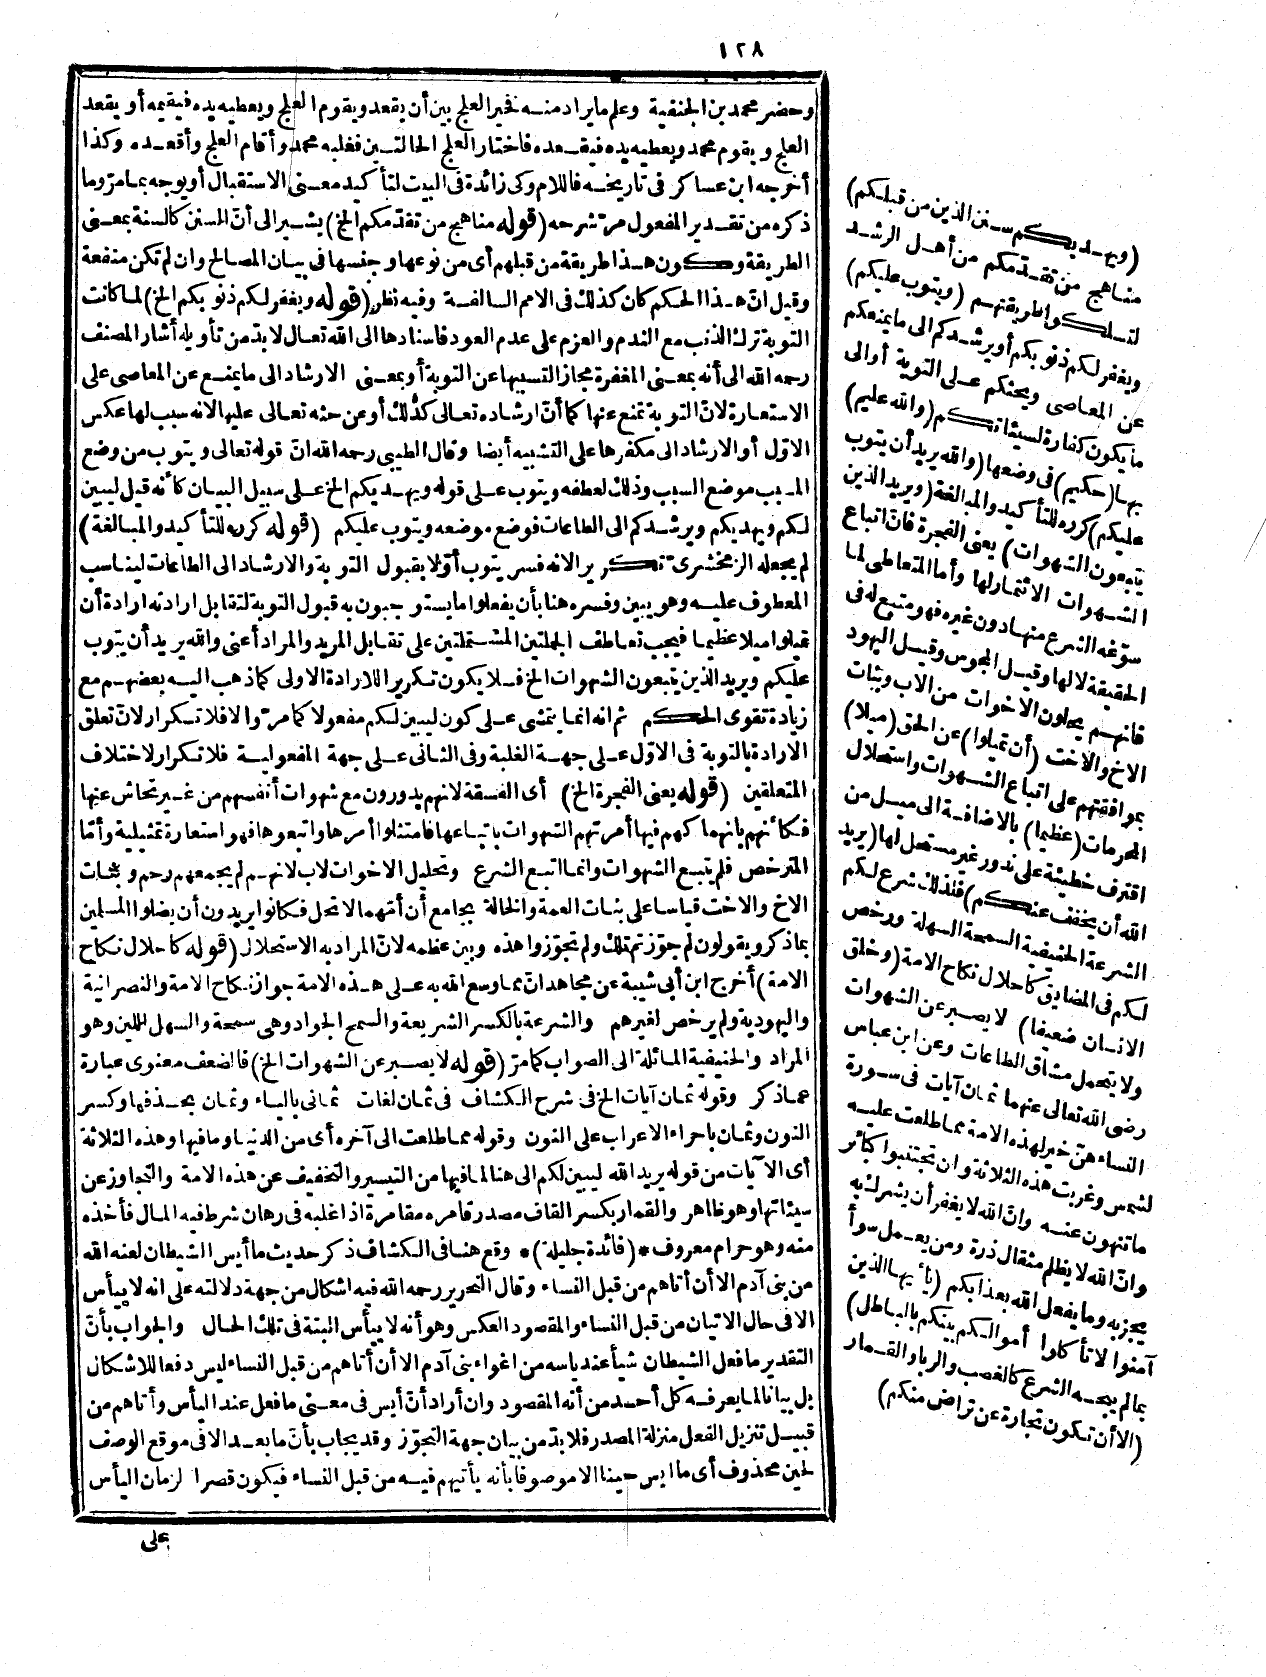 ١٢٨
وحضر محمد بن الحنفية وعلم ما يراد منه فخير العلج بين أن يقعد ويقوم العلج ويعطيه يده فيقيمه أو يقعد
العلج ويقوم محمد ويعطيه يده فيقعده فاختار العلج الحالتين فغلبه محمد وأقام العلج وأقعده وكذا
أخرجه ابن عساكر في تاريخه فاللام وكى زائدة في البيت لتأكيد معنى الاستقبال أو يوجه بما مرّ وما
ذكره من تقدير المفعول مرّ شرحه (قوله مناهج من تقدّمكم الخ) يشير الى أنّ السنن كالسنة بمعنى
الطريقة وكون هذا طريقة من قبلهم أى من نوعها وجنسها في بيان المصالح وان لم تكن متفقة
وقيل انّ هذا الحكم كان كذلك في الامم السالفة وفيه نظر (قوله ويغفر لكم ذنوبكم الخ) لما كانت
التوبة ترك الذنب مع الندم والعزم على عدم العود فاسنادها الى الله تعالى لا بدّ من تأويله أشار المصنف
رحمه الله الى أنه بمعنى المغفرة مجازا لتسببها عن التوبة أو بمعنى الارشاد الى ما يمنع عن المعاصى على
الاستعارة لانّ التوبة تمنع عنها كما أنّ ارشاده تعالى كذلك أو عن حثه تعالى عليها لانه سبب لها عكس
الاوّل أو الارشاد الى مكفرها على التشبيه أيضا وقال الطيبى رحمه الله انّ قوله تعالى ويتوب من وضع
المسبب موضع السبب وذلك لعطفه ويتوب على قوله ويهديكم الخ على سبيل البيان كأنه قيل ليبين
لكم ويهديكم ويرشدكم الى الطاعات فوضع موضعه ويتوب عليكم (قوله كرره للتأكيد والمبالغة)
لم يجعله الزمخشرى تكريرا لانه فسر يتوب أوّلا بقبول التوبة والارشاد الى الطاعات ليناسب
المعطوف عليه وهو يبين وفسره هنا بأن يفعلوا ما يستوجبون به قبول التوبة لتقابل ارادته ارادة أن
تميلوا ميلا عظيما فيجب تعاطف الجملتين المشتملتين على تقابل المريد والمراد أعنى والله يريد أن يتوب
عليكم ويريد الذين يتبعون الشهوات الخ فلا يكون تكريرا للارادة الاولى كما ذهب اليه بعضهم مع
زيادة تقوى الحكم ثم انه انما يتمشى على كون ليبين لكم مفعولا كما مرّ والا فلا تكرار لانّ تعلق
الارادة بالتوبة في الاوّل على جهة العلية وفي الثانى على جهة المفعولية فلا تكرار لاختلاف
المتعلقين (قوله يعنى الفجرة الخ) أى الفسقة لانهم يدورون مع شهوات أنفسهم من غير تحاش عنها
فكأنهم بانهماكهم فيها أمرتهم الشهوات باتباعها فامتثلوا أمرها واتبعوها فهو استعارة تمثيلية وأمّا
المترخص فلم يتبع الشهوات وانما اتبع الشرع وتحليل الاخوات لاب لانهم لم يجمعهم رحم وبنات
الاخ والاخت قياسا على بنات العمة والخالة بجامع أن أمّهما لا تحل فكانوا يريدون أن يضلوا المسلمين
بما ذكر ويقولون لم جوّزتم تلك ولم تجوّزوا هذه وبين عظمه لانّ المراد به الاستحلال (قوله كاحلال نكاح
الامة) أخرج ابن أبى شيبة عن مجاهد انّ مما وسع الله به على هذه الامة جواز نكاح الامة والنصرانية
واليهودية ولم يرخص لغيرهم والشرعة بالكسر الشريعة والسمح الجواد وهى سمحة والسهل اللين وهو
المراد والحنيفية المائلة الى الصواب كما مرّ (قوله لا يصبر عن الشهوات الخ) فالضعف معنوى عبارة
عما ذكر وقوله ثمان آيات الخ في شرح الكشاف في ثمان لغات ثمانى بالياء وثمان بحذفها وكسر
النون وثمان باجراء الاعراب على النون وقوله مما طلعت الى آخره أى من الدنيا وما فيها وهذه الثلاثة
أى الآيات من قوله يريد الله ليبين لكم الى هنا لما فيها من التيسير والتخفيف عن هذه الامة والتجاوز عن
سيئاتها وهو ظاهر والقمار بكسر القاف مصدر قامره مقامرة اذا غلبه في رهان شرط فيه المال فأخذه
منه وهو حرام معروف *(فائدة جليلة)* وقع هنا في الكشاف ذكر حديث ما أيس الشيطان لعنه الله
من بنى آدم الا أن أتاهم من قبل النساء وقال النحرير رحمه الله فيه اشكال من جهة دلالته على انه لا ييأس
الا في حال الاتيان من قبل النساء والمقصود العكس وهو أنه لا ييأس البتة في تلك الحال والجواب بأنّ
التقدير ما فعل الشيطان شيأ عند يأسه من اغواء بنى آدم الا أن أتاهم من قبل النساء ليس دفعا للاشكال
بل بيانا لما يعرفه كل أحد من أنه المقصود وان أراد أنّ أيس في معنى ما فعل عند اليأس وأتاهم من
قبيل تنزيل الفعل منزلة المصدر فلا بدّ من بيان جهة التجوّز وقد يجاب بأنّ ما بعد الا في موقع الوصف
لحين محذوف أى ما أيس حينا الا موصوفا بأنه يأتيهم فيه من قبل النساء فيكون قصرا لزمان اليأس
على
(ويهديكم سنن الذين من قبلكم)
مناهج من تقدّمكم من أهل الرشد
لتسلكوا طريقتهم (ويتوب عليكم)
ويغفر لكم ذنوبكم أو يرشدكم الى ما يمنعكم
عن المعاصى ويحثكم على التوبة أو الى
ما يكون كفارة لسيئاتكم (والله عليم)
بها (حكيم) في وضعها (والله يريد أن يتوب
عليكم) كرره للتأكيد والمبالغة (ويريد الذين
يتبعون الشهوات) يعنى الفجرة فانّ اتباع
الشهوات الائتمار لها وأما المتعاطى لما
سوّغه الشرع منها دون غيره فهو متبع له في
الحقيقة لا لها وقيل المجوس وقيل اليهود
فانهم يحلون الاخوات من الاب وبنات
الاخ والاخت (أن تميلوا) عن الحق (ميلا)
بموافقتهم على اتباع الشهوات واستحلال
المحرمات (عظيما) بالاضافة الى ميل من
اقترف خطيئة على ندور غير مستحل لها (يريد
الله أن يخفف عنكم) فلذلك شرع لكم
الشرعة الحنيفية السمحة السهلة ورخص
لكم في المضايق كاحلال نكاح الامة (وخلق
الانسان ضعيفا) لا يصبر عن الشهوات
ولا يتحمل مشاق الطاعات وعن ابن عباس
رضى الله تعالى عنهما ثمان آيات في سورة
النساء هنّ خير لهذه الامة مما طلعت عليه
الشمس وغربت هذه الثلاثة وان تجتنبوا كبائر
ما تنهون عنه وانّ الله لا يغفر أن يشرك به
وانّ الله لا يظلم مثقال ذرة ومن يعمل سوأ
يجز به وما يفعل الله بعذابكم (يا أيها الذين
آمنوا لا تأكلوا أموالكم بينكم بالباطل)
بما لم يبحه الشرع كالغصب والربا والقمار
(الا أن تكون تجارة عن تراض منكم)